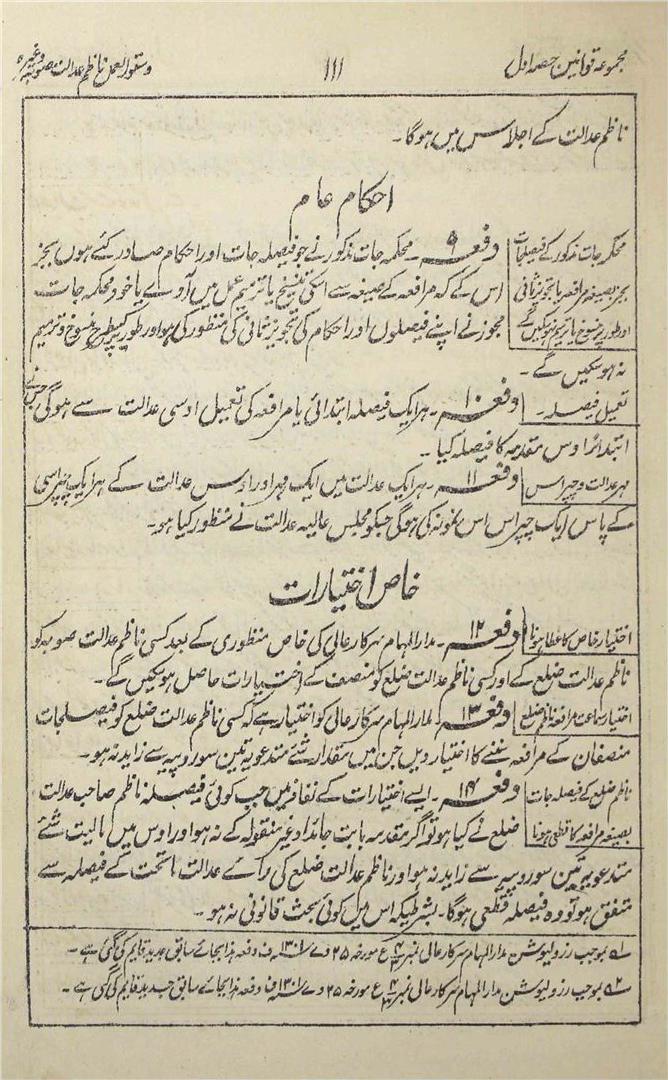 مجموعہ قوانین حصہ اول
۱۱۱
دستور العمل ناظم عدالت صوبہ وغیرہ
ناظم عدالت کے اجلاس میں ہوگا۔
احکام عام
محکمہ جات مذکور کے فیصلجات
بجز بصیغہ مرافعہ یا تجویز ثانی
اور طور پر منسوخ یا ترمیم نہو سکیں گے
دفعہ ۹ ۔ محکمہ جات مذکور نے جو فیصلہ جات اور احکام صادر کئے ہوں بجز
اس کے کہ مرافعہ کے صیغہ سے اسکی تنسیخ یا ترمیم عمل میں آوے یا خود محکمہ جات
مجوز نے اپنے فیصلوں اور احکام کی تجویز ثانی کی منظوری کی ہو اور طور پر کسیطرح منسوخ و ترمیم
نہ ہوسکیں گے ۔
تعمیل فیصلہ ۔
دفعہ ۱۰ ۔ ہر ایک فیصلہ ابتدائی یا مرافعہ کی تعمیل اوسی عدالت سے ہوگی جس نے
ابتدائًر اوس مقدمہ کا فیصلہ کیا ۔
مہر عدالت و چپراس
دفعہ ۱۱ ۔ ہر ایک عدالت میں ایک مہر اور اوس عدالت کے ہر ایک چپراسی
کے پاس ایک چپراس اس نمونہ کی ہوگی جسکو مجلس عالیہ عدالت نے منظور کیا ہو۔
خاص اختیارات
اختیار خاص کا عطا ہونا
دفعہ ۱۲ ۔ مدار المہام سرکار عالی کی خاص منظوری کے بعد کسی ناظم عدالت صوبہ کو
ناظم عدالت ضلع کے اور کسی ناظم عدالت ضلع کو منصف کے اختیارات حاصل ہوسکیں گے ۔
اختیار سماعت مرافعہ ناظم ضلع
دفعہ ۱۳ ۔ مدار المہام سرکار عالی کو اختیار ہے کہ کسی ناظم عدالت ضلع کو فیصلجات
منصفان کے مرافعہ سننے کا اختیار دیں جن میں مقدار شئے متدعویہ تین سو روپیہ سے زاید نہ ہو ۔
ناظم ضلع کے فیصلہ جات
بصیغہ مرافعہ کا قطعی ہونا
دفعہ ۱۴ ۔ ایسے اختیارات کے نفاذ میں جب کوئی فیصلہ ناظم صاحب عدالت
ضلع نے کیا ہو تو اگر مقدمہ بابت جائداد غیر منقولہ کے نہ ہو اور اوس میں مالیت شئے
متدعویہ تین سو روپیہ سے زاید نہ ہو اور ناظم عدالت ضلع کی رائے عدالت ماتحت کے فیصلہ سے
متفق ہو تو وہ فیصلہ قطعی ہوگا ۔ بشرطیکہ اس میں کوئی بحث قانونی نہ ہو ۔
۱ بموجب رزولیوشن مدار المہام سرکار عالی نمبر مورخہ ۲۵ دے ۱۳۰۱ ف دفعہ ہذا بجائے سابق جدید قایم کی گئی ہے ۔
۲ بموجب رزولیوشن مدار المہام سرکار عالی نمبر مورخہ ۲۵ دے ۱۳۰۱ ف دفعہ ہذا بجائے سابق جدید قایم کی گئی ہے ۔